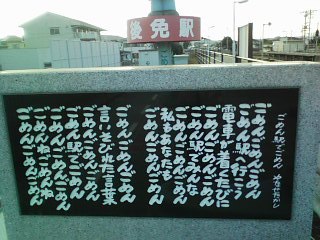 後免駅
ごめん駅でごめん やなせたかし
ごめんごめんごめん
ごめん駅へ行こう
電車が着くたびに
ごめんごめんごめん
ごめん駅でみんな
私もあなたも
ごめんごめんごめん
言いそびれた言葉
ごめんごめんごめん
ごめん駅でごめん
ごめんごめんごめん
ごめんねごめんね
ごめんごめんごめん